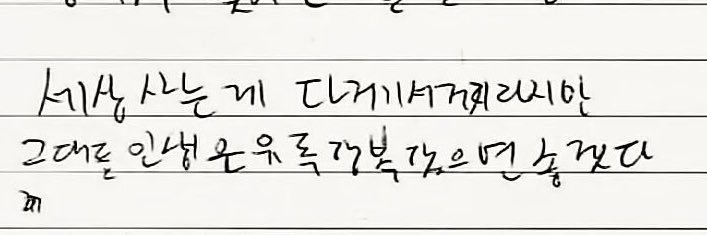 세상 사는 게 다 거기서 거기라지만
그대들 인생은 유독 행복했으면 좋겠다